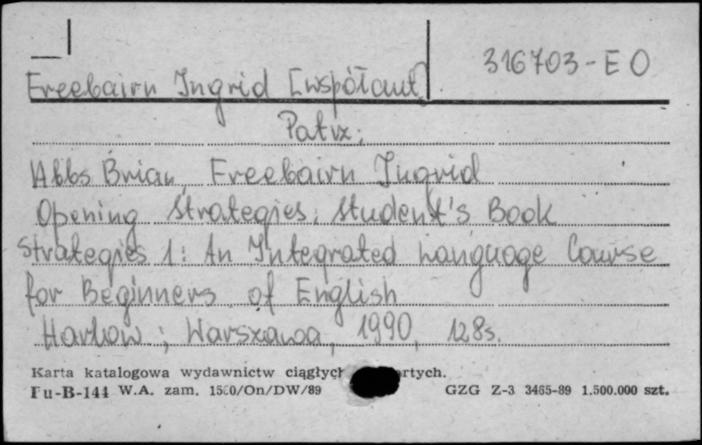 316703-E O
Freebairn Ingrid [współaut.]
Patrz:
Abbs Brian, Freebairn Ingrid
Opening Strategies: Student's Book
Strategies 1: An Integrated Language Course
for Beginners of English
Harlow; Warszawa, 1990, 128s.
Karta katalogowa wydawnictw ciągłych
Pu-B-144 W.A. zam. 1560/On/DW/89 GZG Z-3 3465-89 1.500.000 szt.